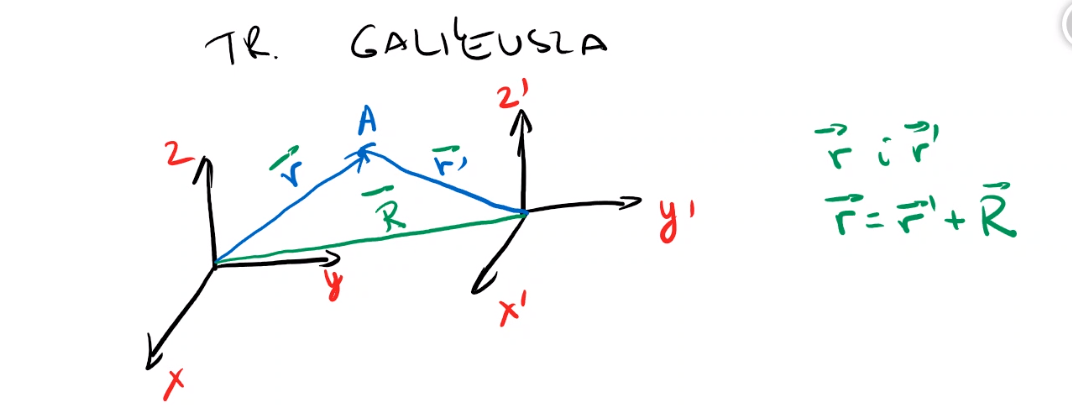 TR. GALILEUSZA
A
z
z'
r⃗
r⃗'
R⃗
y
y'
x
x'
r⃗ i r⃗'
r⃗ = r⃗' + R⃗